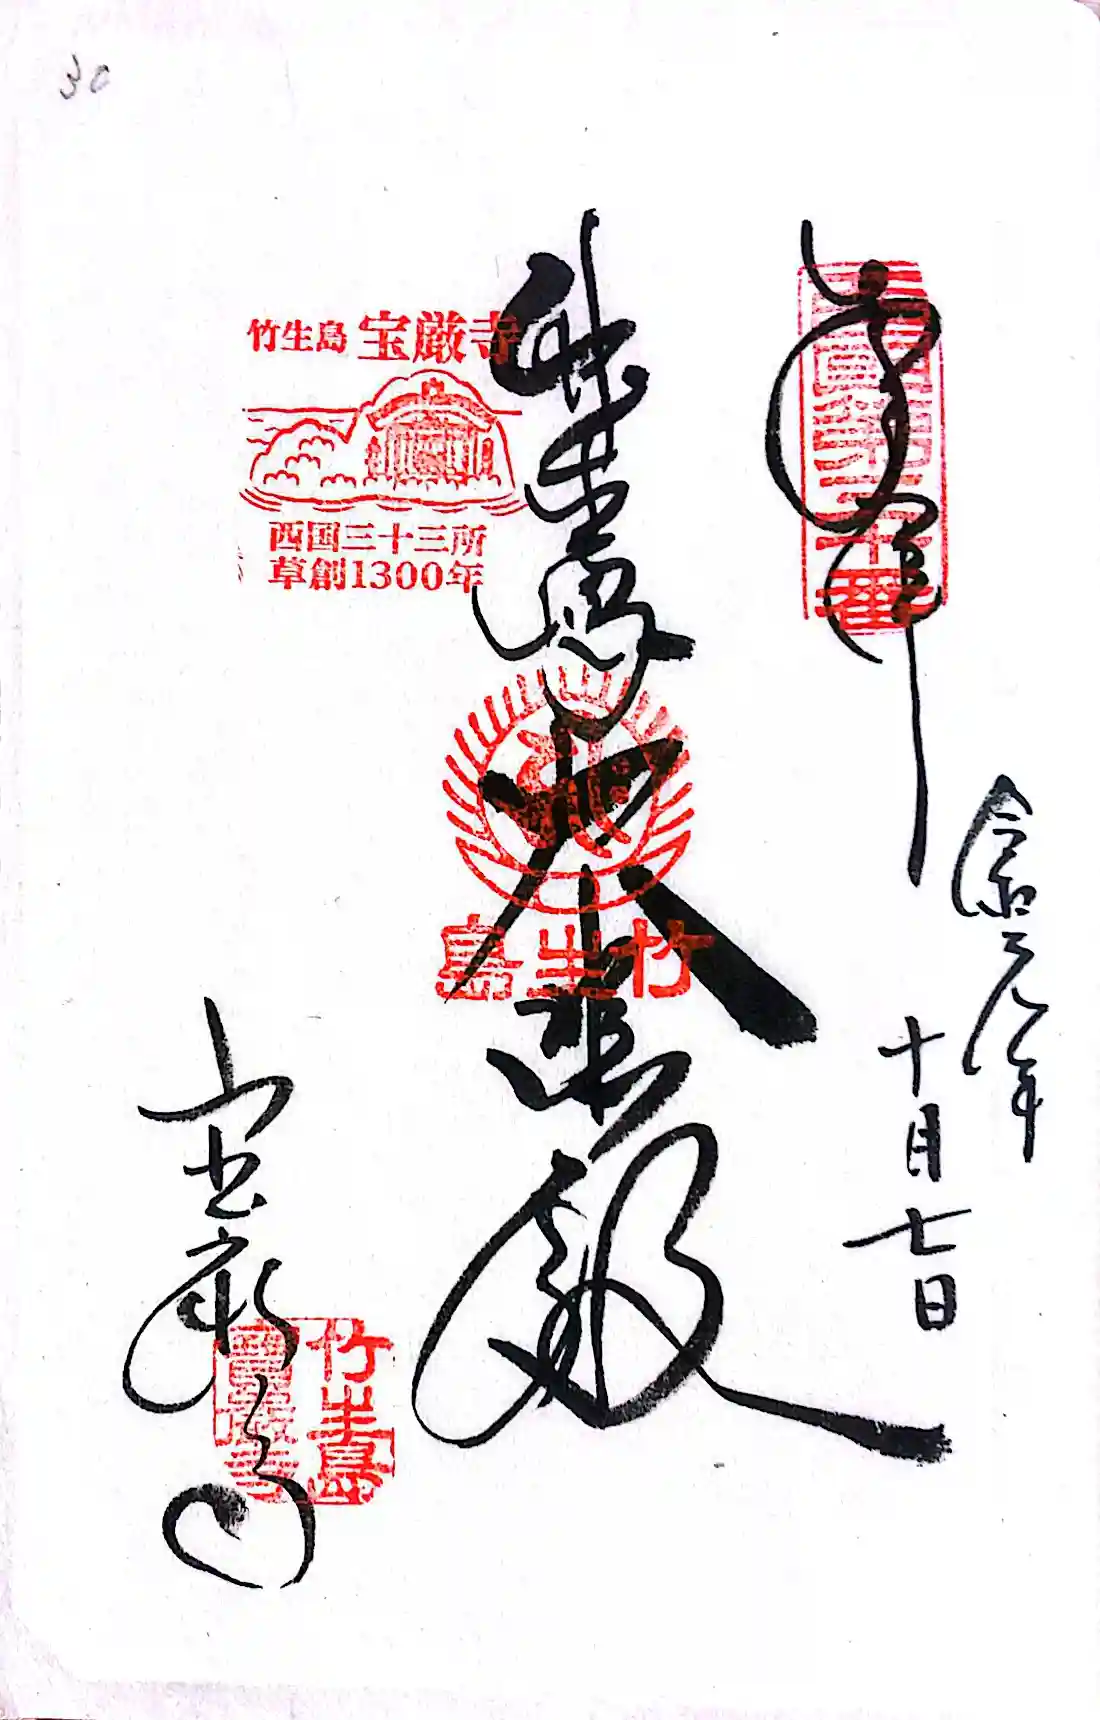 30
奉拝
西国第三十番
令和元年
十月七日
竹生島
大悲殿
竹生島
竹生島 宝厳寺
西国三十三所
草創1300年
宝厳寺
竹生島